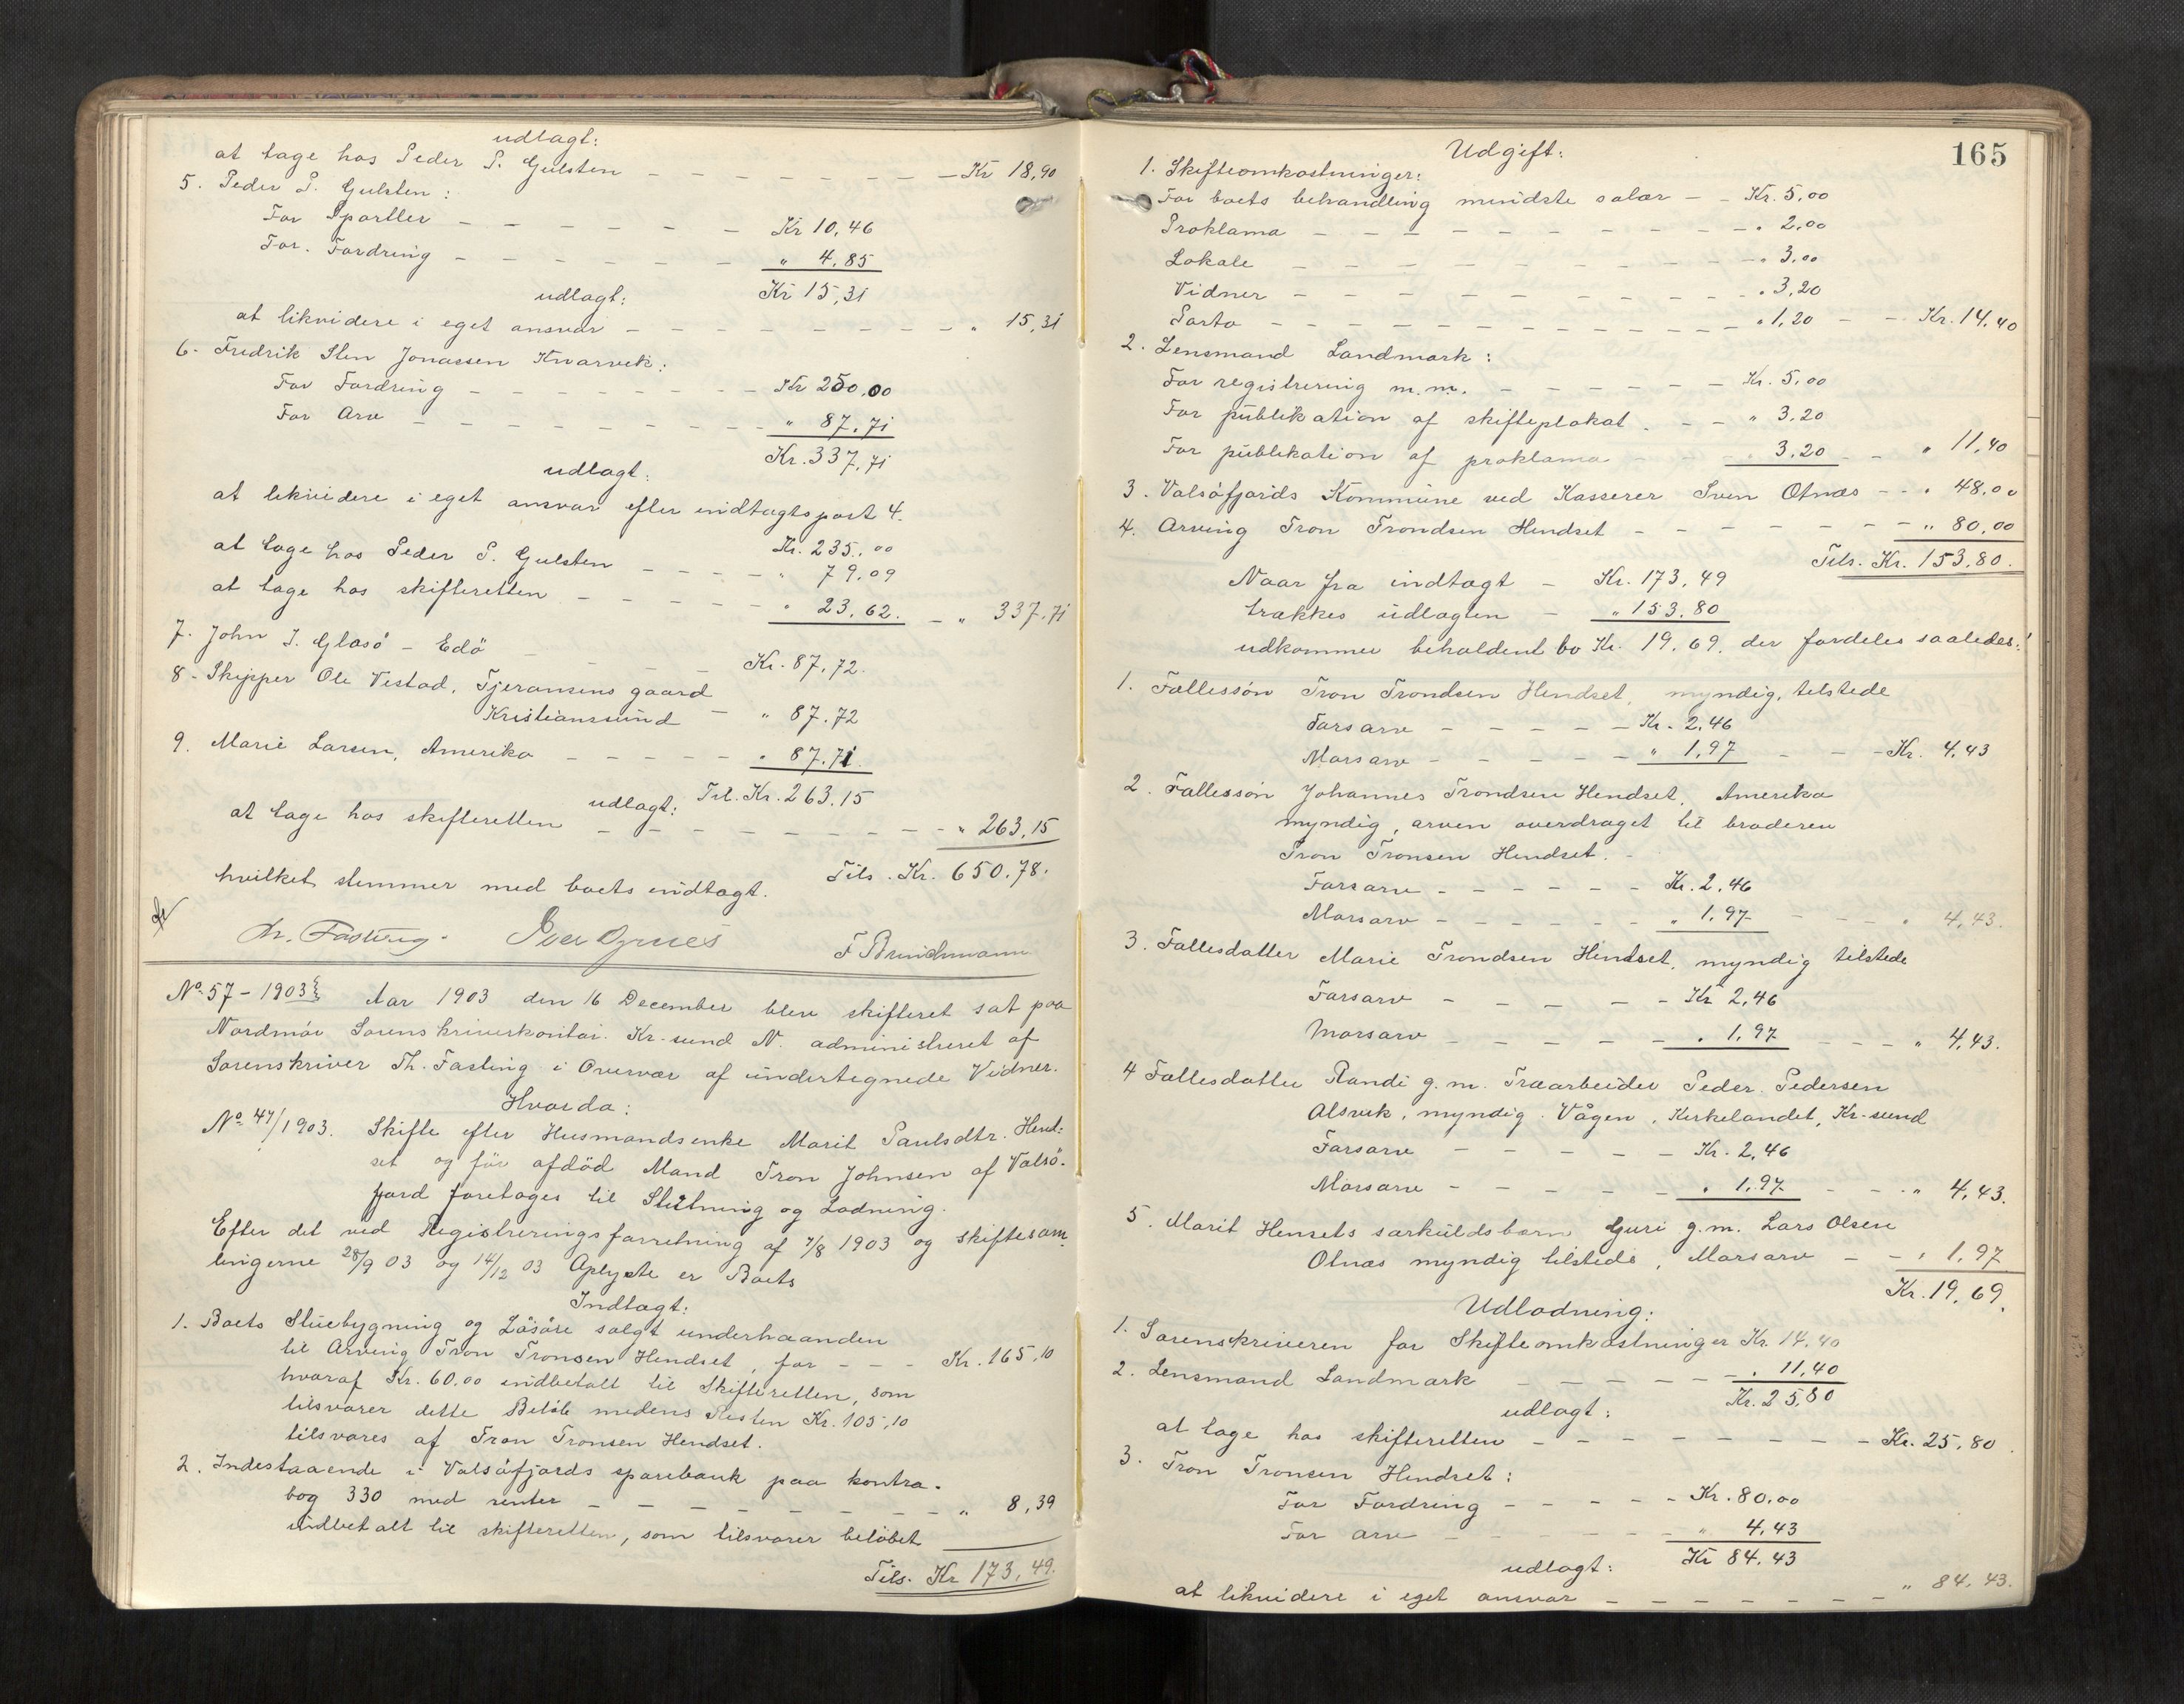 udlagt:
at tage hos Peder P. Gulsten — Kr 18,90
5. Peder P. Gulsten:
For Sportler — Kr 10,46
For Fordring — " 4,85
Kr 15,31
udlagt:
at likvidere i eget ansvar — " 15,31
6. Fredrik Sten Jonassen Kvarvik:
For Fordring — Kr 250,00
For Arv — " 87,71
Kr. 337,71
udlagt:
at likvidere i eget ansvar efter indtagtspost 4.
Kr. 235,00
at tage hos Peder P. Gulsten — " 79,09
at tage hos skifteretten — " 23,62. — " 337,71
7. John I. Glasö - Edö — Kr. 87,72.
8. Skipper Ole Vestad, Tjeransens gaard
Kristiansund — " 87,72
9. Marie Larsen, Amerika — " 87,71
Til. Kr. 263,15
udlagt:
at tage hos skifteretten — " 263,15
Tils. Kr. 650,78.
hvilket stemmer med boets indtagt.
Th. Fasting. Iver Öynes F Brinchmann
No. 57 - 1903 Aar 1903 den 16 December blev skifteret sat paa
Nordmör Sorenskriverkontor Kr-sund N. administreret af
Sorenskriver Th. Fasting i Overvær af undertegnede Vidner.
Hvorda:
No. 47/1903. Skifte efter Husmandsenke Marit Paulsdtr. Hend:
set og för afdöd Mand Tron Johnsen af Valsö-
fjord foretages til Slutning og Lodning.
Efter det ved Registreringsforretning af 7/8 1903 og skiftesam
lingerne 28/9 03 og 14/12 03 Oplyste er Boets
Indtagt:
1. Boets Stuebygning og Lösöre solgt underhaanden
til Arving Tron Tronsen Hendset, for — Kr. 165,10
hvoraf Kr. 60.00 indbetalt til Skifteretten, som
tilsvarer dette Belöb medens Resten Kr. 105,10
tilsvares af Tron Tronsen Hendset.
2. Indestaaende i Valsöfjords sparebank paa kontra-
bog 330 med renter — " 8,39
indbetalt til skifteretten, som tilsvarer belöbet
Tils. Kr 173,49.
165
Udgift:
1. Skifteomkostninger:
For boets behandling mindste salær — Kr. 5,00
Proklama — " 2,00
Lokale — " 3,00
Vidner — " 3,20
Porto — " 1,20 — Kr. 14,40
2. Lensmand Landmark:
For registrering m.m. — Kr. 5,00
For publikation af skifteplakat. — " 3,20
For publikation af proklama — 3,20 — " 11,40
3. Valsöfjords Kommune ved Kasserer Sven Otnæs — " 48,00
4. Arving Tron Trondsen Hendset — " 80,00
Tils. Kr. 153,80.
Naar fra indtagt — Kr. 173,49
trækkes udlagten — " 153.80
udkommer beholdent bo Kr. 19,69. der fordeles saaledes:
1. Fællessön Tron Trondsen Hendset, myndig, tilstede
Farsarv — Kr. 2,46
Morsarv — " 1,97 — Kr. 4,43
2. Fællessön Johannes Trondsen Hendset, Amerika
myndig, arven overdraget til broderen
Tron Tronsen Hendset. -
Farsarv — Kr. 2,46
Morsarv — " 1,97 — " 4,43.
3. Fællesdatter Marie Trondsen Hendset, myndig tilstede
Farsarv — Kr 2,46
Morsarv — " 1,97 — " 4,43.
4 Fællesdatter Randi g.m. Træarbeider Peder Pedersen
Alsvik, myndig. Vågen, Kirkelandet, Kr-sund
Farsarv — Kr. 2,46
Morsarv — " 1,97 — " 4,43.
5. Marit Hensets særkuldsbarn Guri g.m. Lars Olsen
Otnæs myndig tilstede, Morsarv — " 1,97
Kr. 19,69.
Udlodning:
1. Sorenskriveren for Skifteomkostninger Kr. 14,40
2. Lensmand Landmark — " 11,40
Kr. 25,80
udlagt:
at tage hos skifteretten — Kr. 25,80.
3. Tron Tronsen Hendset:
For Fordring — Kr. 80,00
For arv — " 4,43
Kr 84,43
udlagt:
at likvidere i eget ansvar — " 84,43.